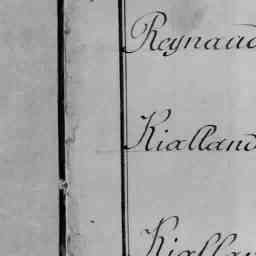 Reynaud
Rialland
Riallan